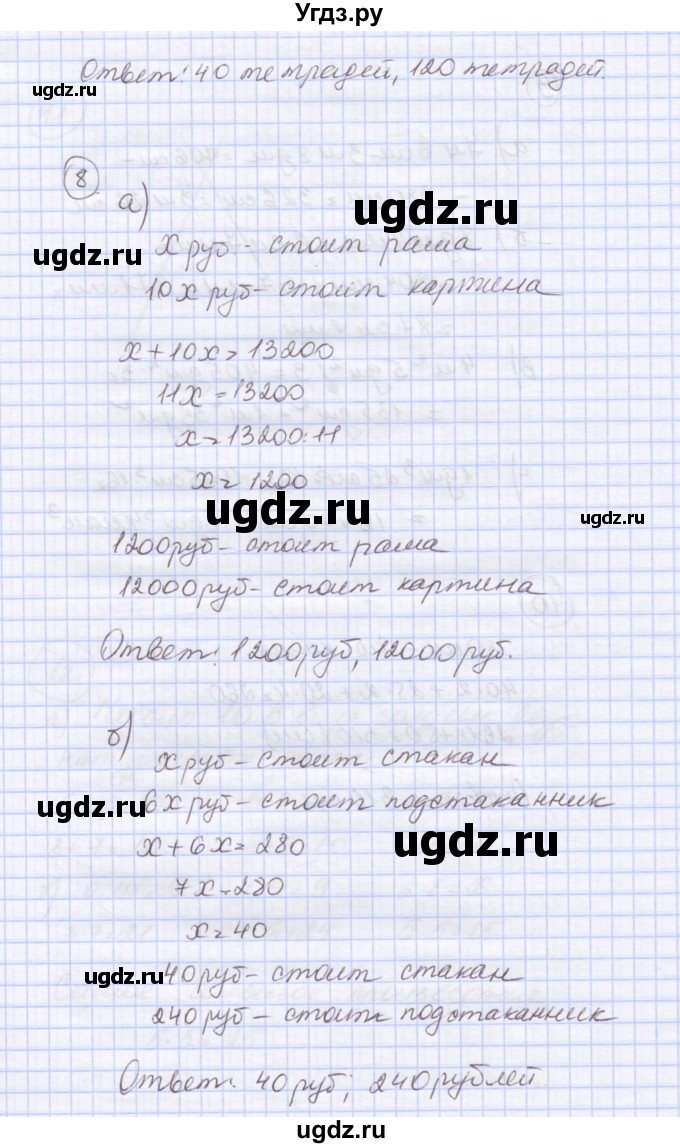 Угдз.ру
Ответ: 40 тетрадей, 120 тетрадей.
ugdz.ru
8
а)
ugdz.ru
х руб - стоит рама
ugdz.ru
ugdz.ru
10х руб - стоит картина
х + 10х = 13200
11х = 13200
х = 13200 : 11
х = 1200
ugdz.ru
ugdz.ru
1200 руб - стоит рама
12000 руб - стоит картина
Ответ: 1200 руб, 12000 руб.
б)
х руб - стоит стакан
6х руб - стоит подстаканник
ugdz.ru
х + 6х = 280
ugdz.ru
7х = 280
х = 40
40 руб - стоит стакан
ugdz.ru
240 руб - стоит подстаканник
ugdz.ru
Ответ: 40 руб; 240 рублей
ugdz.ru